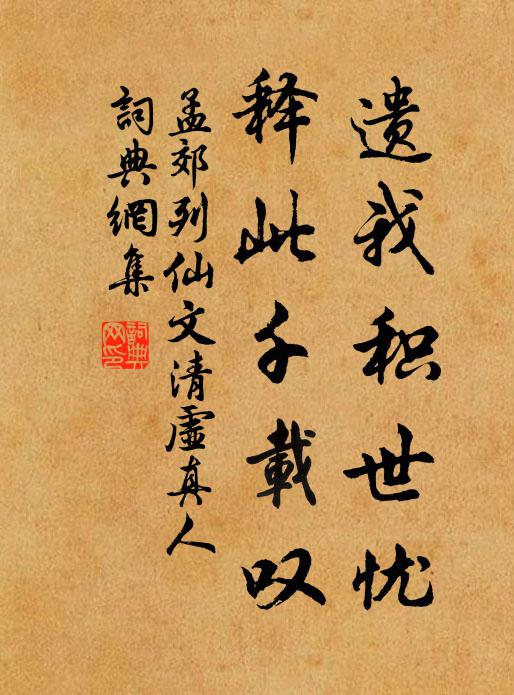 遗我积世忧
释此千载叹
孟郊列仙文清虚真人
詞典網集
詞典网印